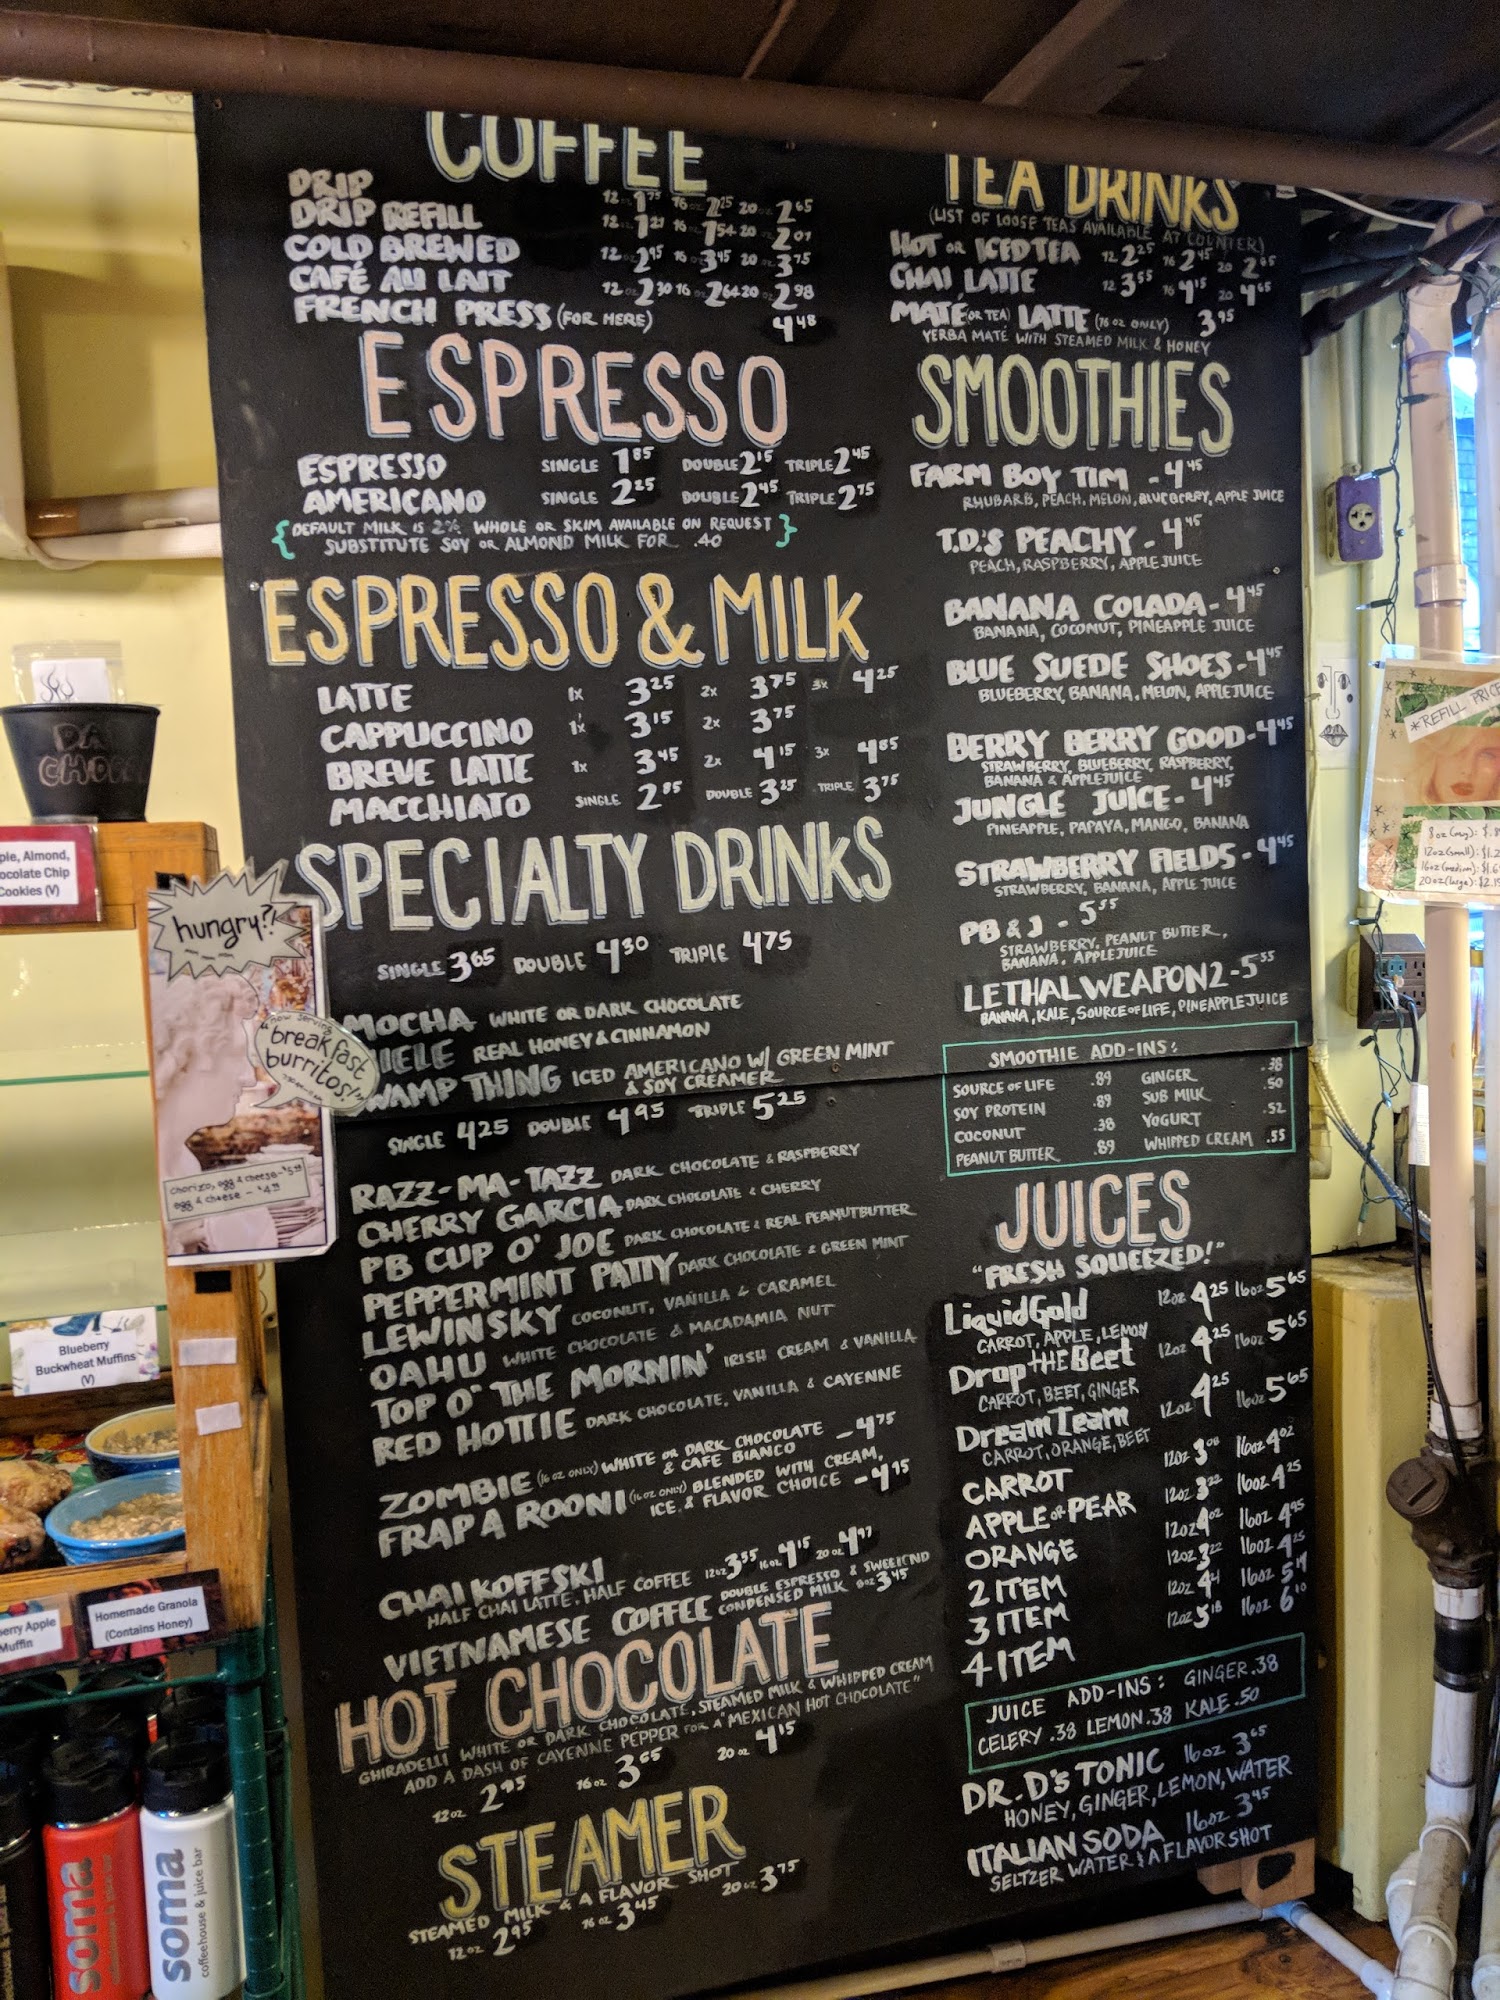 COFFEE
DRIP 12 oz 1.75 16 oz 2.25 20 oz 2.65
DRIP REFILL 12 oz 1.21 16 oz 1.54 20 oz 2.01
COLD BREWED 12 oz 2.95 16 oz 3.45 20 oz 3.75
CAFÉ AU LAIT 12 oz 2.30 16 oz 2.64 20 oz 2.98
FRENCH PRESS (FOR HERE) 4.48
ESPRESSO
ESPRESSO SINGLE 1.85 DOUBLE 2.15 TRIPLE 2.45
AMERICANO SINGLE 2.25 DOUBLE 2.45 TRIPLE 2.75
{DEFAULT MILK IS 2% WHOLE OR SKIM AVAILABLE ON REQUEST
SUBSTITUTE SOY OR ALMOND MILK FOR .40}
ESPRESSO & MILK
LATTE 1x 3.25 2x 3.75 3x 4.25
CAPPUCCINO 1x 3.15 2x 3.75
BREVE LATTE 1x 3.45 2x 4.15 3x 4.85
MACCHIATO SINGLE 2.85 DOUBLE 3.25 TRIPLE 3.75
SPECIALTY DRINKS
SINGLE 3.65 DOUBLE 4.30 TRIPLE 4.75
MOCHA WHITE OR DARK CHOCOLATE
MIELE REAL HONEY & CINNAMON
SWAMP THING ICED AMERICANO W/ GREEN MINT
& SOY CREAMER
SINGLE 4.25 DOUBLE 4.95 TRIPLE 5.25
RAZZ-MA-TAZZ DARK CHOCOLATE & RASPBERRY
CHERRY GARCIA DARK CHOCOLATE & CHERRY
PB CUP O' JOE DARK CHOCOLATE & REAL PEANUTBUTTER
PEPPERMINT PATTY DARK CHOCOLATE & GREEN MINT
LEWINSKY COCONUT, VANILLA & CARAMEL
OAHU WHITE CHOCOLATE & MACADAMIA NUT
TOP O' THE MORNIN' IRISH CREAM & VANILLA
RED HOTTIE DARK CHOCOLATE, VANILLA & CAYENNE
ZOMBIE (16 OZ ONLY) WHITE OR DARK CHOCOLATE - 4.75
& CAFE BIANCO
FRAP A ROONI (16 OZ ONLY) BLENDED WITH CREAM,
ICE & FLAVOR CHOICE - 4.95
CHAI KOFFSKI
HALF CHAI LATTE, HALF COFFEE 12oz 3.35 16oz 4.15 20 oz 4.97
VIETNAMESE COFFEE DOUBLE ESPRESSO & SWEETEND
CONDENSED MILK 8oz 3.45
HOT CHOCOLATE
GHIRADELLI WHITE OR DARK CHOCOLATE, STEAMED MILK & WHIPPED CREAM
ADD A DASH OF CAYENNE PEPPER FOR A "MEXICAN HOT CHOCOLATE"
12oz 2.95 16 oz 3.65 20 oz 4.15
STEAMER
STEAMED MILK & A FLAVOR SHOT
12oz 2.95 16 oz 3.45 20 oz 3.75
TEA DRINKS
(LIST OF LOOSE TEAS AVAILABLE AT COUNTER)
HOT OR ICED TEA 12 2.25 16 2.45 20 2.65
CHAI LATTE 12 3.55 16 4.15 20 4.65
MATÉ (OR TEA) LATTE (16 OZ ONLY) 3.95
YERBA MATÉ WITH STEAMED MILK & HONEY
SMOOTHIES
FARM BOY TIM - 4.45
RHUBARB, PEACH, MELON, BLUEBERRY, APPLE JUICE
T.D.'S PEACHY - 4.45
PEACH, RASPBERRY, APPLE JUICE
BANANA COLADA - 4.45
BANANA, COCONUT, PINEAPPLE JUICE
BLUE SUEDE SHOES - 4.45
BLUEBERRY, BANANA, MELON, APPLE JUICE
BERRY BERRY GOOD - 4.45
STRAWBERRY, BLUEBERRY, RASPBERRY,
BANANA & APPLEJUICE
JUNGLE JUICE - 4.45
PINEAPPLE, PAPAYA, MANGO, BANANA
STRAWBERRY FIELDS - 4.45
STRAWBERRY, BANANA, APPLE JUICE
PB & J - 5.55
STRAWBERRY, PEANUT BUTTER,
BANANA, APPLEJUICE
LETHAL WEAPON 2 - 5.55
BANANA, KALE, SOURCE OF LIFE, PINEAPPLE JUICE
SMOOTHIE ADD-INS:
SOURCE OF LIFE .89 GINGER .38
SOY PROTEIN .89 SUB MILK .50
COCONUT .38 YOGURT .52
PEANUT BUTTER .89 WHIPPED CREAM .55
JUICES
"FRESH SQUEEZED!"
Liquid Gold 12oz 4.25 16oz 5.65
CARROT, APPLE, LEMON
Drop THE Beet 12oz 4.25 16oz 5.65
CARROT, BEET, GINGER
Dream Team 12oz 4.25 16oz 5.65
CARROT, ORANGE, BEET
CARROT 12oz 3.08 16oz 4.02
APPLE OR PEAR 12oz 3.22 16oz 4.25
ORANGE 12oz 4.02 16oz 4.95
2 ITEM 12oz 3.22 16oz 4.25
3 ITEM 12oz 16oz
4 ITEM 12oz 5.18 16oz 6.10
JUICE ADD-INS: GINGER .38
CELERY .38 LEMON .38 KALE .50
DR. D'S TONIC 16oz 3.65
HONEY, GINGER, LEMON, WATER
ITALIAN SODA 16oz 3.45
SELTZER WATER & A FLAVOR SHOT
ple, Almond,
ocolate Chip
Cookies (V)
hungry?!
now serving
breakfast
burritos!
chorizo, egg & cheese -
egg & cheese -
Blueberry
Buckwheat Muffins
(V)
erry Apple
Muffin
Homemade Granola
(Contains Honey)
soma
soma
coffeehouse & juice bar
*REFILL PRICE
8oz
12oz (small): $1.2
16oz (medium): $1.6
20oz (large): $2.1